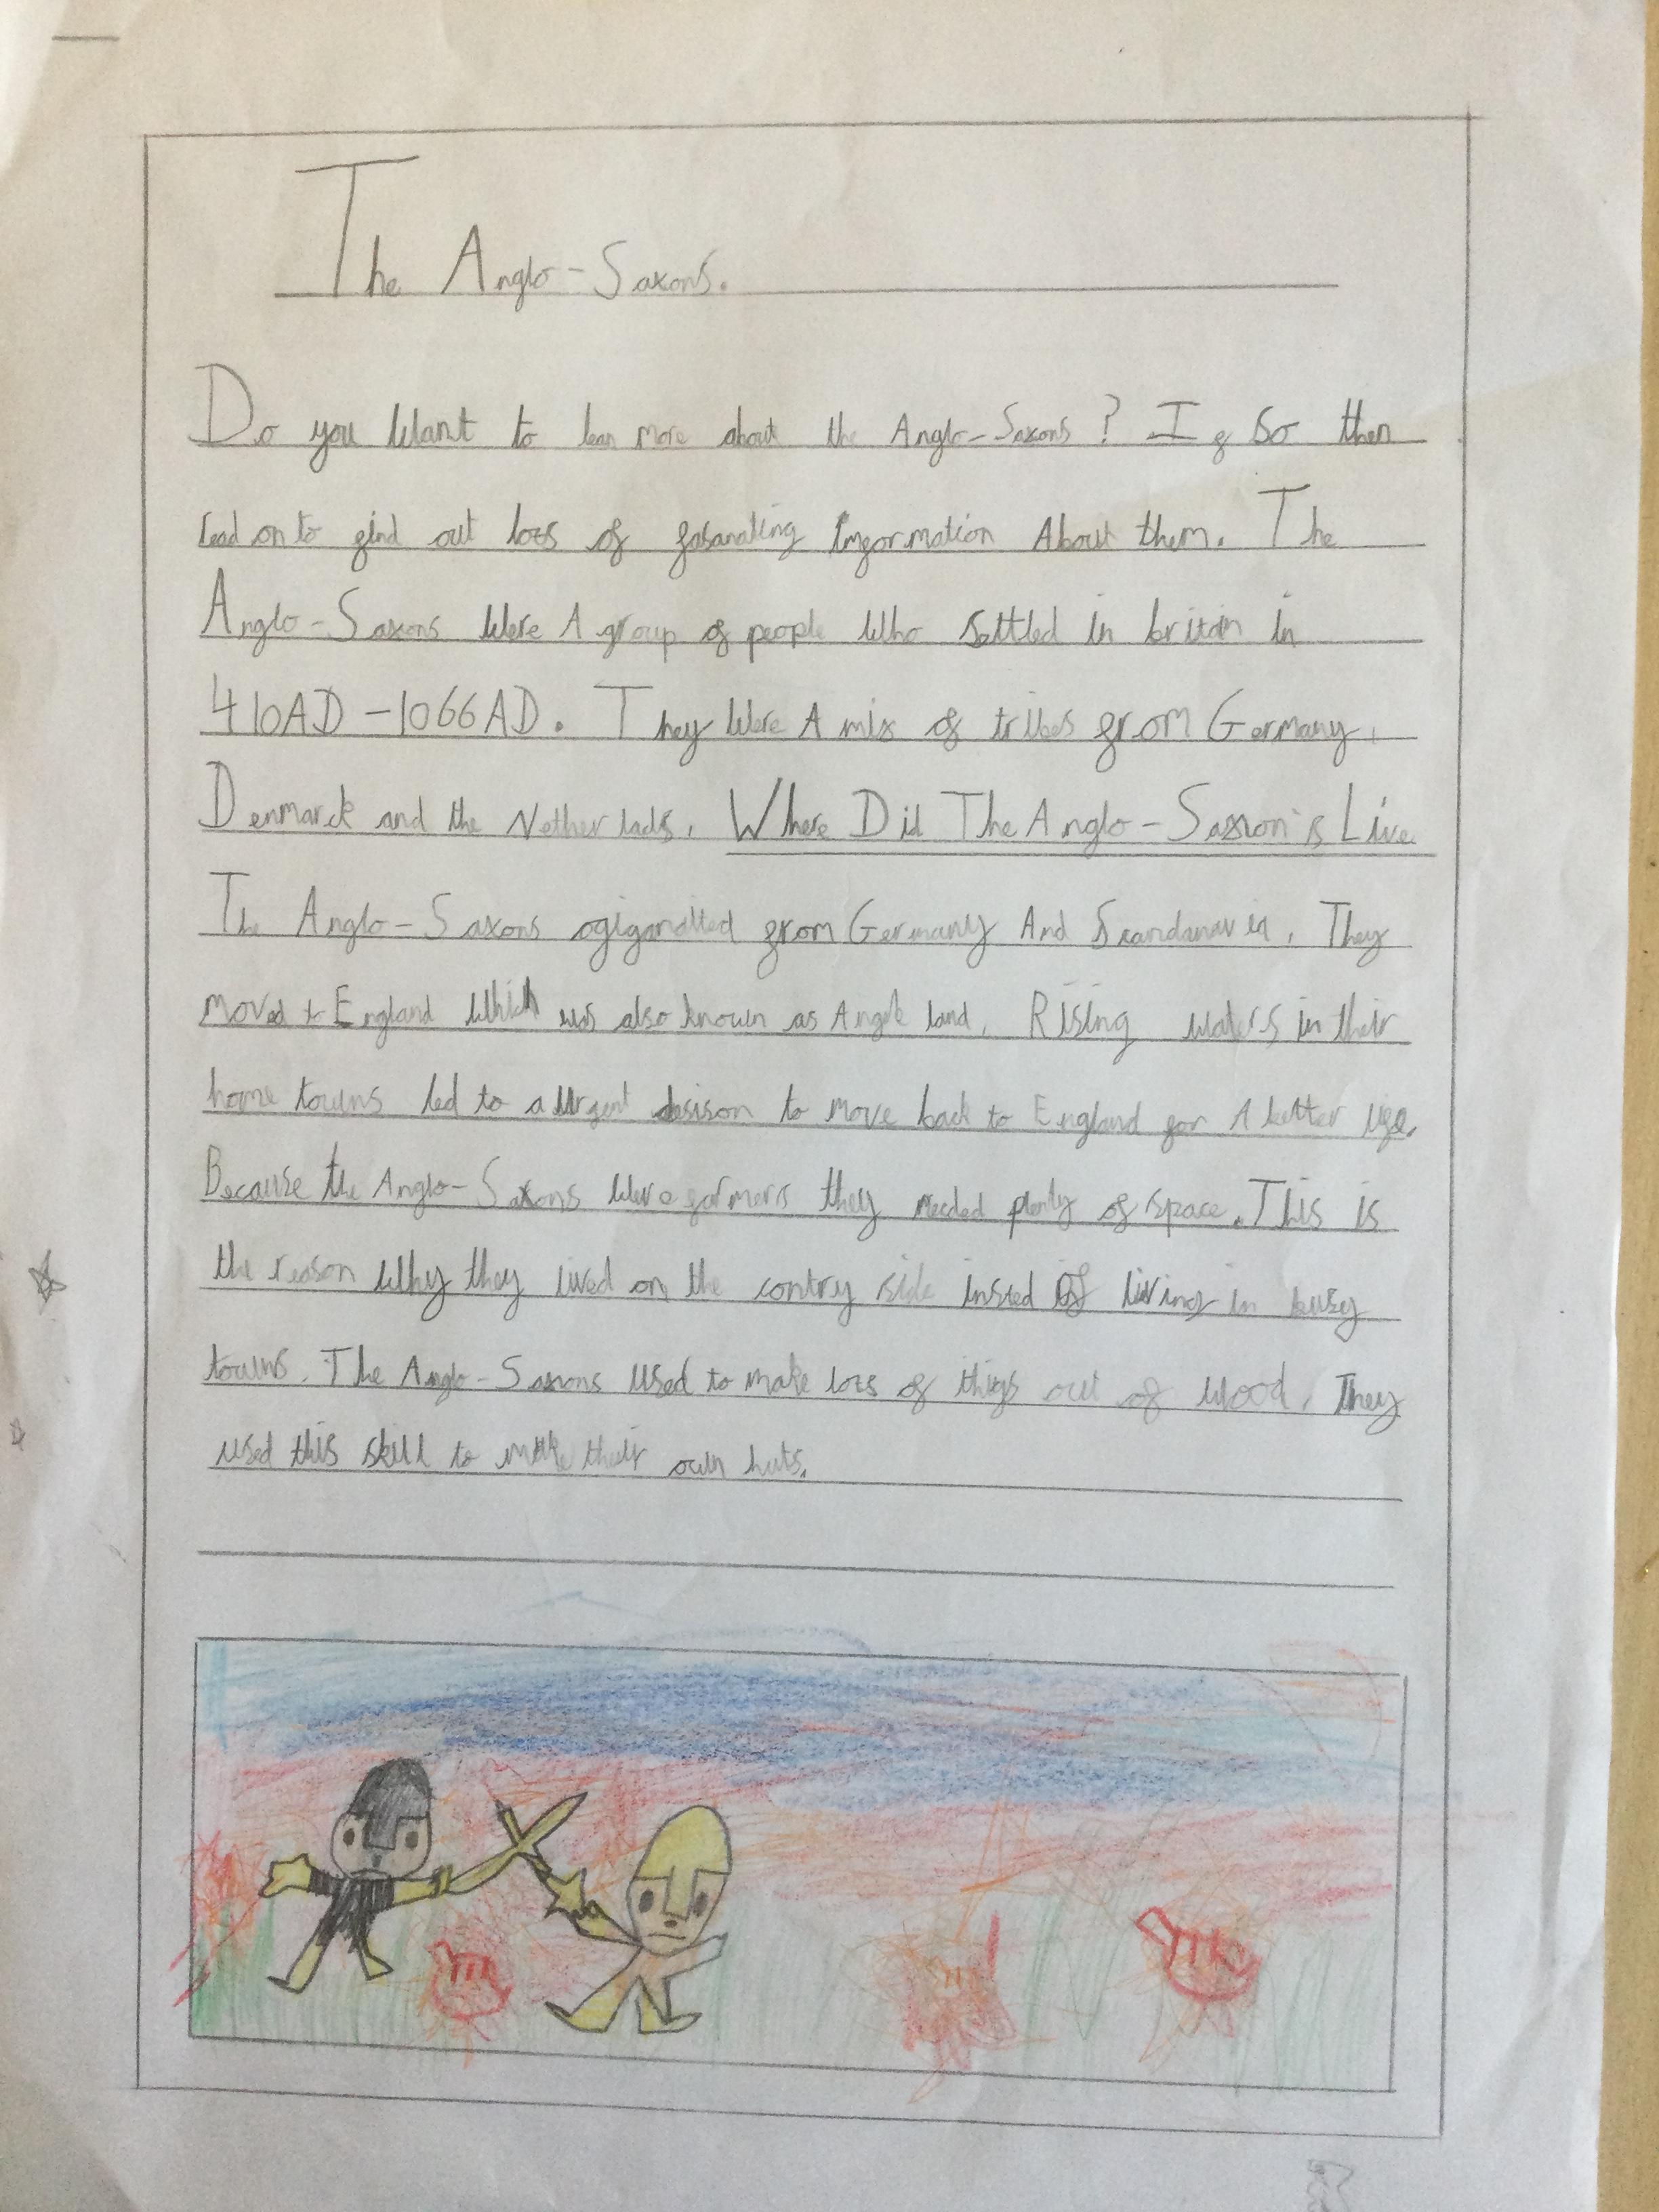 The Anglo-Saxons.
Do you Want to lean more about the Anglo-Saxons? If So then
read on to find out lots of fasanating Imformation About them. The
Anglo-Saxons Were A group of people Who Settled in britain in
410AD-1066AD. They Were A mix of tribes from Germany,
Denmarck and the Netherlads. Where Did The Anglo-Saxon's Live
The Anglo-Saxons ogiganatted from Germany And Scandanavia. They
moved to England Which was also known as Angle land. Rising Waters in their
home towns led to a Urgent desison to move back to England for A better life.
Because the Anglo-Saxons Were farmers they needed plenty of space. This is
the reason Why they lived on the contry side insted of living in busy
towns. The Anglo-Saxons Used to make lots of thigs out of Wood. They
used this skill to make their own huts.